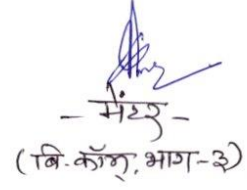 - मेंटर -
(बि. कॉम्. भाग-३)